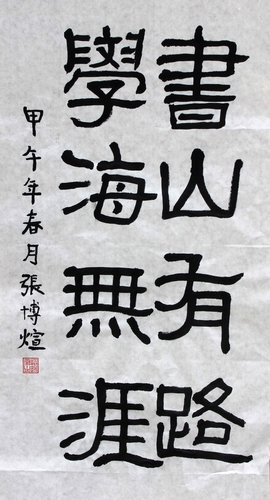 書山有路
學海無涯
甲午年春月張博煊